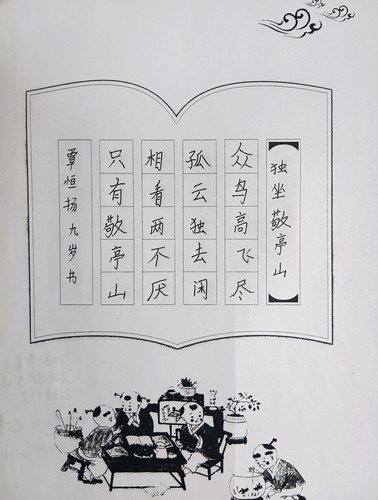 独坐敬亭山
众鸟高飞尽
孤云独去闲
相看两不厌
只有敬亭山
覃恒扬九岁书